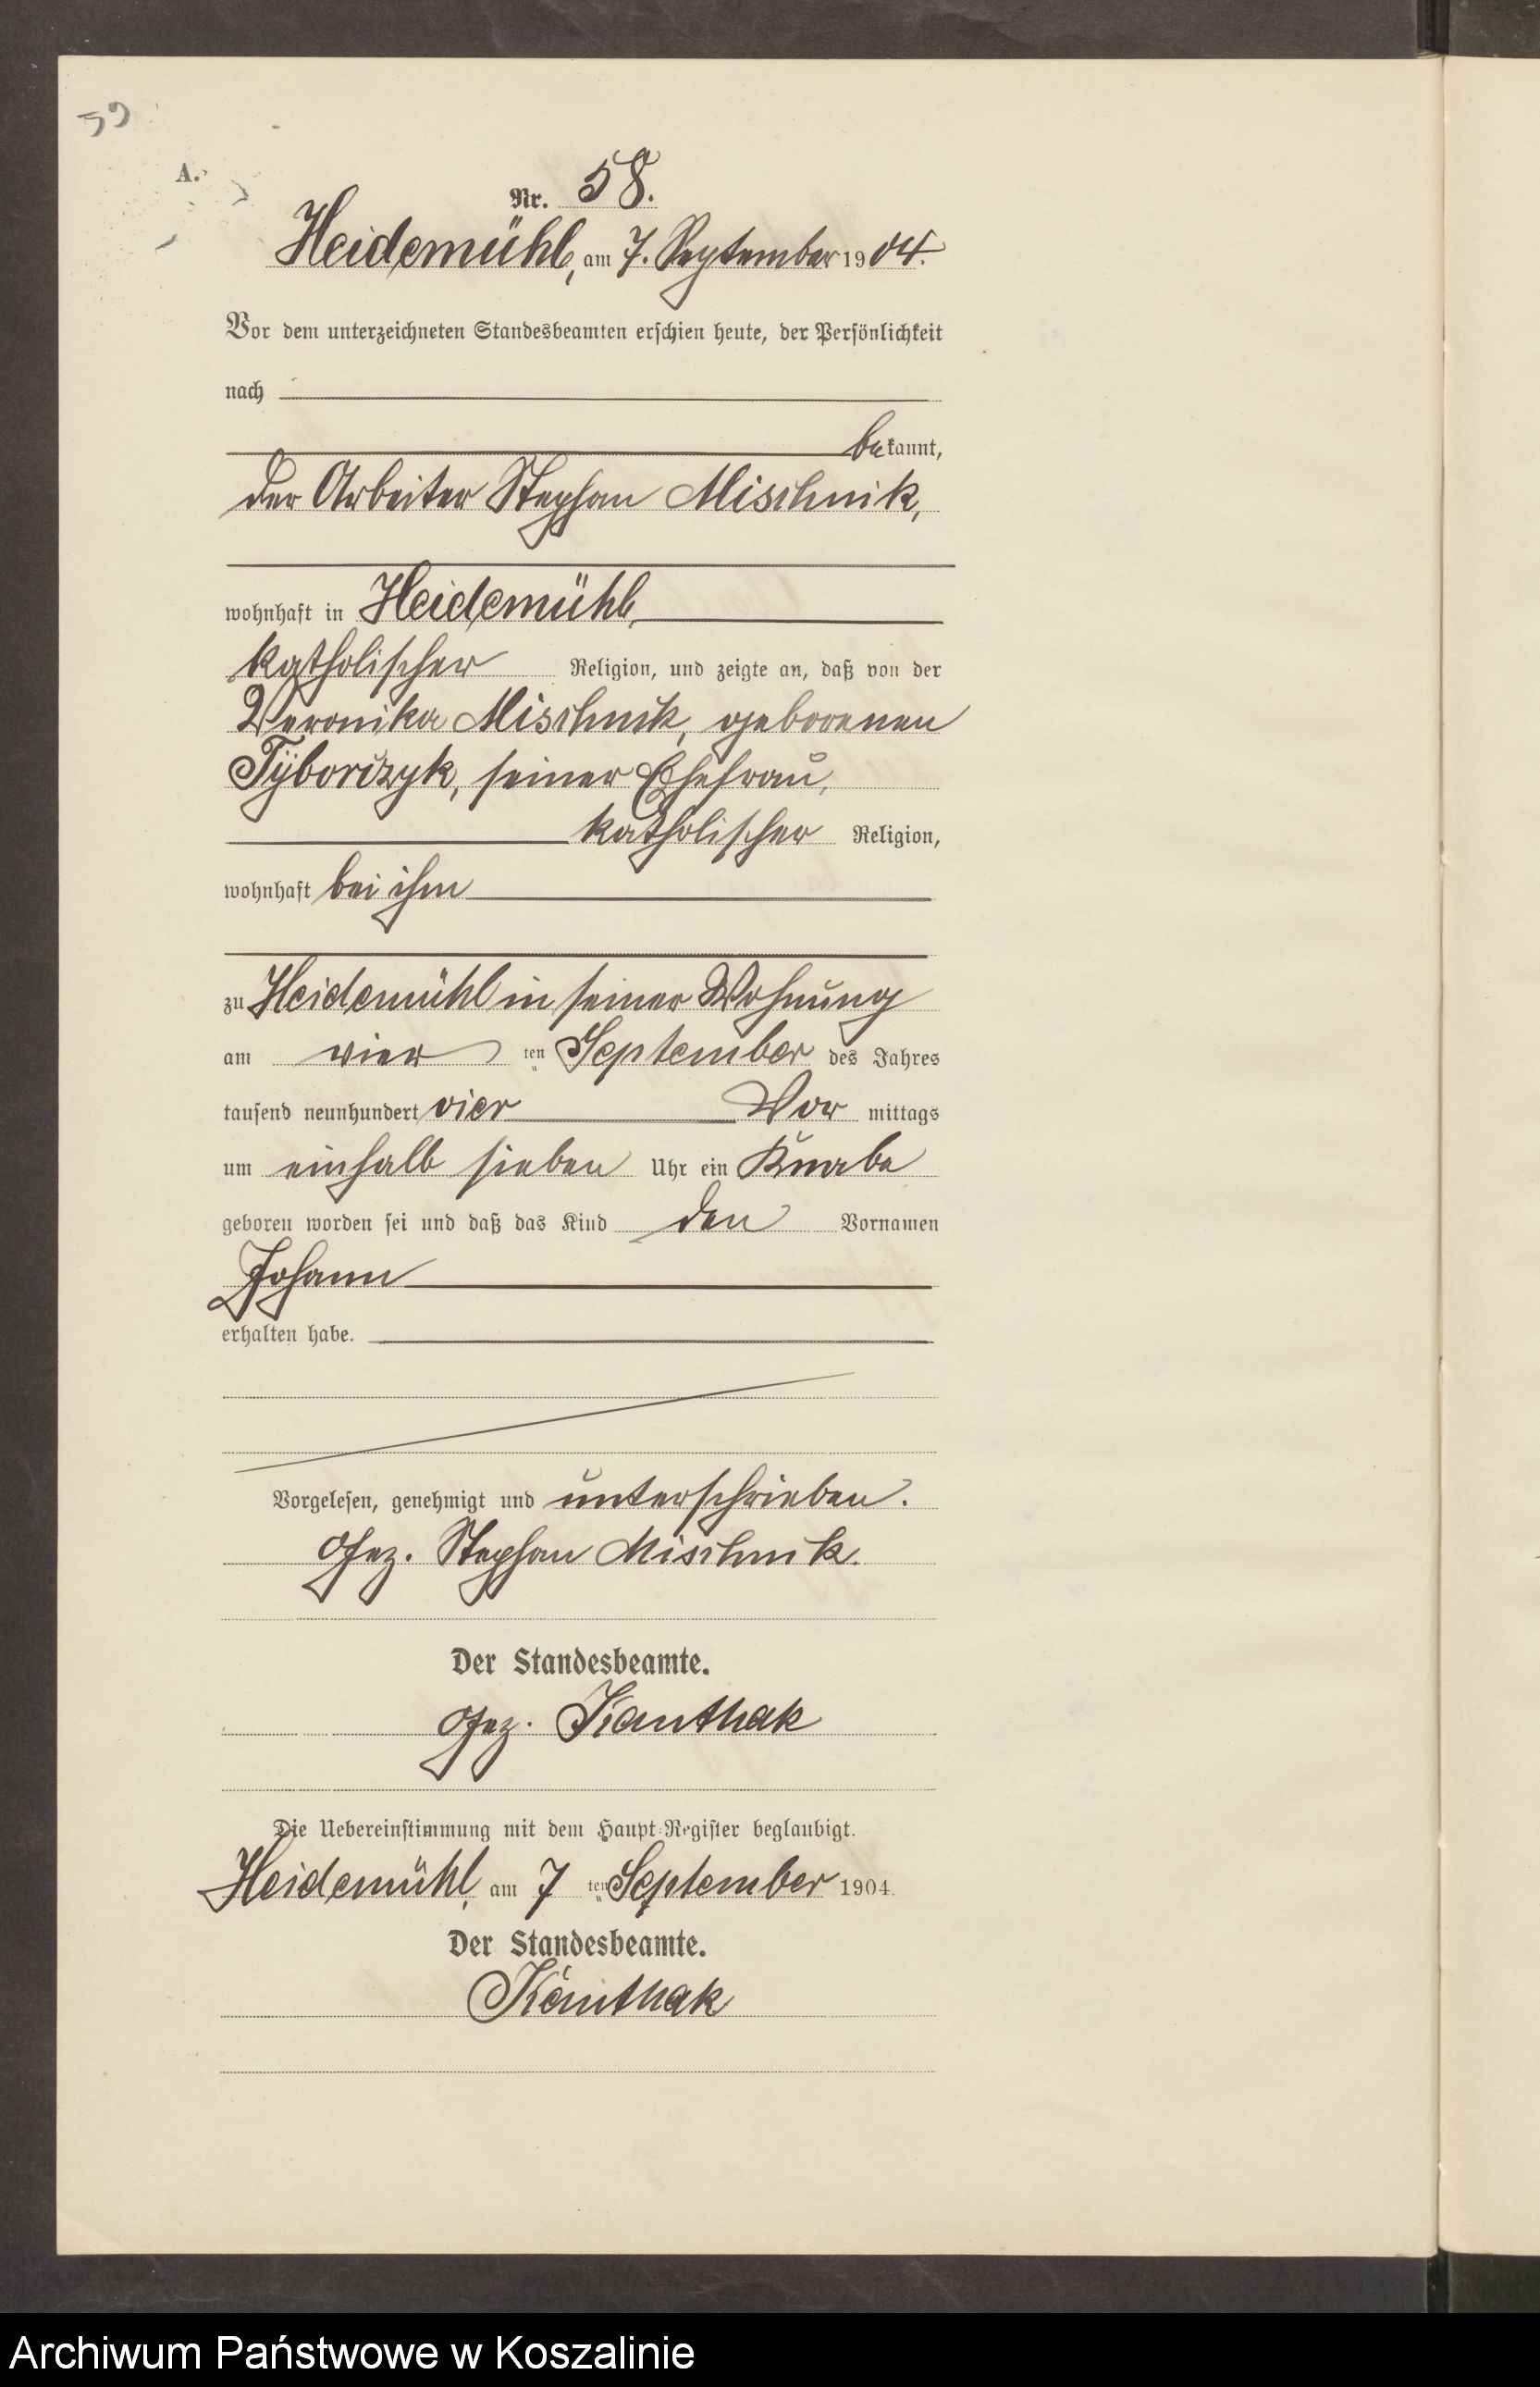 59
A.
Nr. 58.
Heidemühl, am 7. September 1904.
Vor dem unterzeichneten Standesbeamten erschien heute, der Persönlichkeit
nach
bekannt,
der Arbeiter Stephan Mischnik,
wohnhaft in Heidemühl,
katholischer Religion, und zeigte an, daß von der
Veronika Mischnik, geborenen
Tÿborczyk, seiner Ehefrau,
katholischer Religion,
wohnhaft bei ihm
zu Heidemühl in seiner Wohnung
am vier ten September des Jahres
tausend neunhundert vier Vor mittags
um einhalb sieben Uhr ein Knabe
geboren worden sei und daß das Kind den Vornamen
Johann
erhalten habe.
Vorgelesen, genehmigt und unterschrieben.
Gez. Stephan Mischnik.
Der Standesbeamte.
Gez. Kanthak
Die Uebereinstimmung mit dem Haupt-Register beglaubigt.
Heidemühl, am 7 ten September 1904.
Der Standesbeamte.
Kanthak
Archiwum Państwowe w Koszalinie